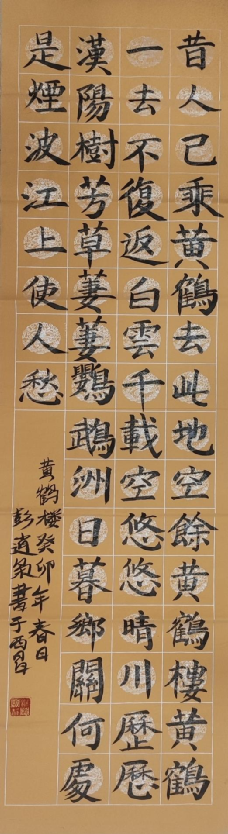 昔人已乘黄鶴去此地空餘黄鶴樓黄鶴
一去不復返白雲千載空悠悠晴川歷歷
漢陽樹芳草萋萋鸚鵡洲日暮鄉關何處
是煙波江上使人愁
黄鶴樓癸卯年春日
彭書于